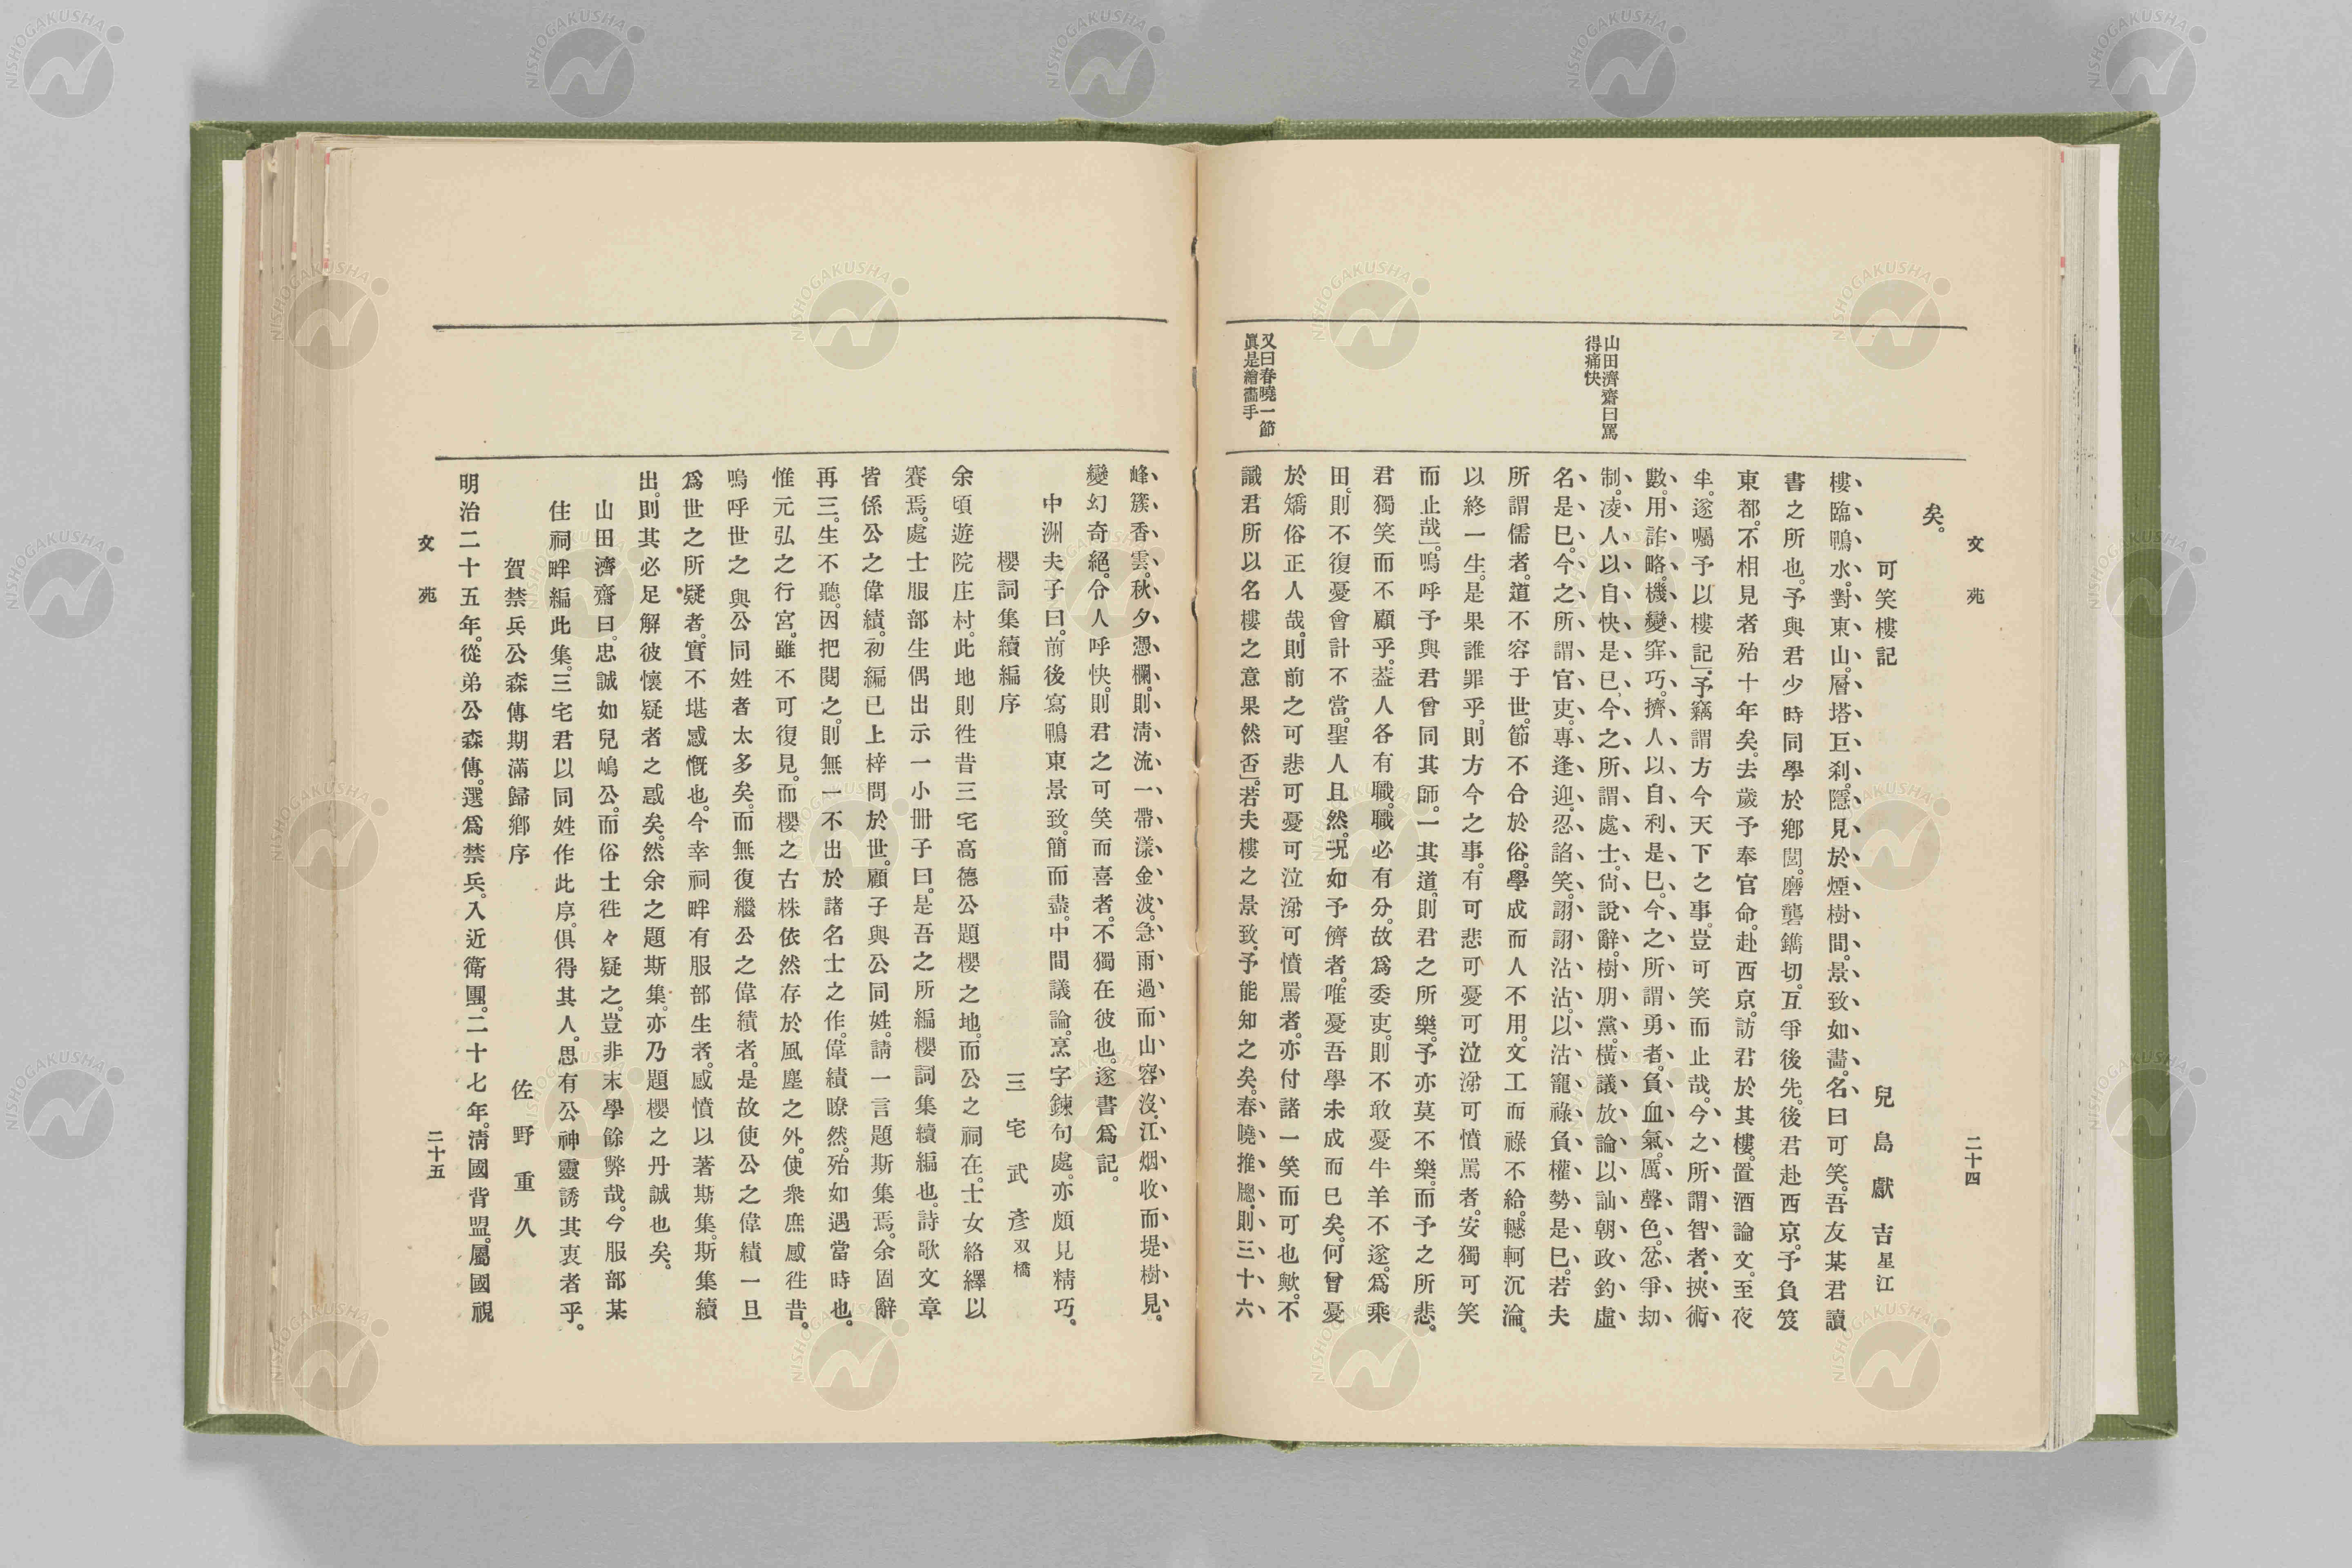 文苑
二十四
矣。
可笑樓記
兒島獻吉星江
樓臨鴨水。對東山。層塔巨刹。隱見於煙樹間。景致如畵。名曰可笑。吾友某君讀
書之所也。予與君少時同學於鄕閭。磨礱鐫切。互爭後先。後君赴西京。予負笈
東都。不相見者殆十年矣。去歲予奉官命。赴西京。訪君於其樓。置酒論文。至夜
半。遂囑予以樓記」。予竊謂方今天下之事。豈可笑而止哉。今之所謂智者。挾術
數。用詐略。機變穽巧。擠人以自利是已。今之所謂勇者。負血氣。厲聲色。忿爭刧
制。凌人以自快是已。今之所謂處士。尙說辭。樹朋黨。橫議放論以訕朝政釣虛
名是已。今之所謂官吏。專逢迎。忍諂笑。詡詡沾沾。以沽寵祿負權勢是已。若夫
所謂儒者。道不容于世。節不合於俗。學成而人不用。文工而祿不給。轗軻沉淪。
以終一生。是果誰罪乎。則方今之事。有可悲可憂可泣涕可憤罵者。安獨可笑
而止哉」。嗚呼予與君曾同其師。一其道。則君之所樂。予亦莫不樂。而予之所悲。
君獨笑而不顧乎。葢人各有職。職必有分。故爲委吏。則不敢憂牛羊不遂。爲乘
田。則不復憂會計不當。聖人且然。况如予儕者。唯憂吾學未成而已矣。何曾憂
於矯俗正人哉。則前之可悲可憂可泣涕可憤罵者。亦付諸一笑而可也歟。不
識君所以名樓之意果然否」。若夫樓之景致。予能知之矣。春曉推牕。則三十六
山田濟齋曰罵
得痛快
又曰春曉一節
眞是繪畵手
峰簇香雲。秋夕憑欄。則淸流一帶漾金波。急雨過而山容沒。江烟收而堤樹見。
變幻奇絕。令人呼快。則君之可笑而喜者。不獨在彼也。遂書爲記。
中洲夫子曰。前後寫鴨東景致。簡而盡。中間議論。烹字鍊句處。亦頗見精巧。
櫻詞集續編序
三宅武彥双橋
余頃遊院庄村。此地則徃昔三宅高德公題櫻之地。而公之祠在。士女絡繹以
賽焉。處士服部生偶出示一小冊子曰。是吾之所編櫻詞集續編也。詩歌文章
皆係公之偉績。初編已上梓問於世。顧子與公同姓。請一言題斯集焉。余固辭
再三。生不聽。因把閱之。則無一不出於諸名士之作。偉績瞭然。殆如遇當時也。
惟元弘之行宮。雖不可復見。而櫻之古株依然存於風塵之外。使衆庶感徃昔。
嗚呼世之與公同姓者太多矣。而無復繼公之偉績者。是故使公之偉績一旦
爲世之所疑者。實不堪感慨也。今幸祠畔有服部生者。感憤以著斯集。斯集續
出。則其必足解彼懷疑者之惑矣。然余之題斯集。亦乃題櫻之丹誠也矣。
山田濟齋曰。忠誠如兒嶋公。而俗士徃々疑之。豈非末學餘弊哉。今服部某
住祠畔編此集。三宅君以同姓作此序。俱得其人。思有公神靈誘其衷者乎。
賀禁兵公森傳期滿歸鄕序
佐野重久
明治二十五年。從弟公森傳。選爲禁兵。入近衛團。二十七年。淸國背盟。屬國視
文苑
二十五